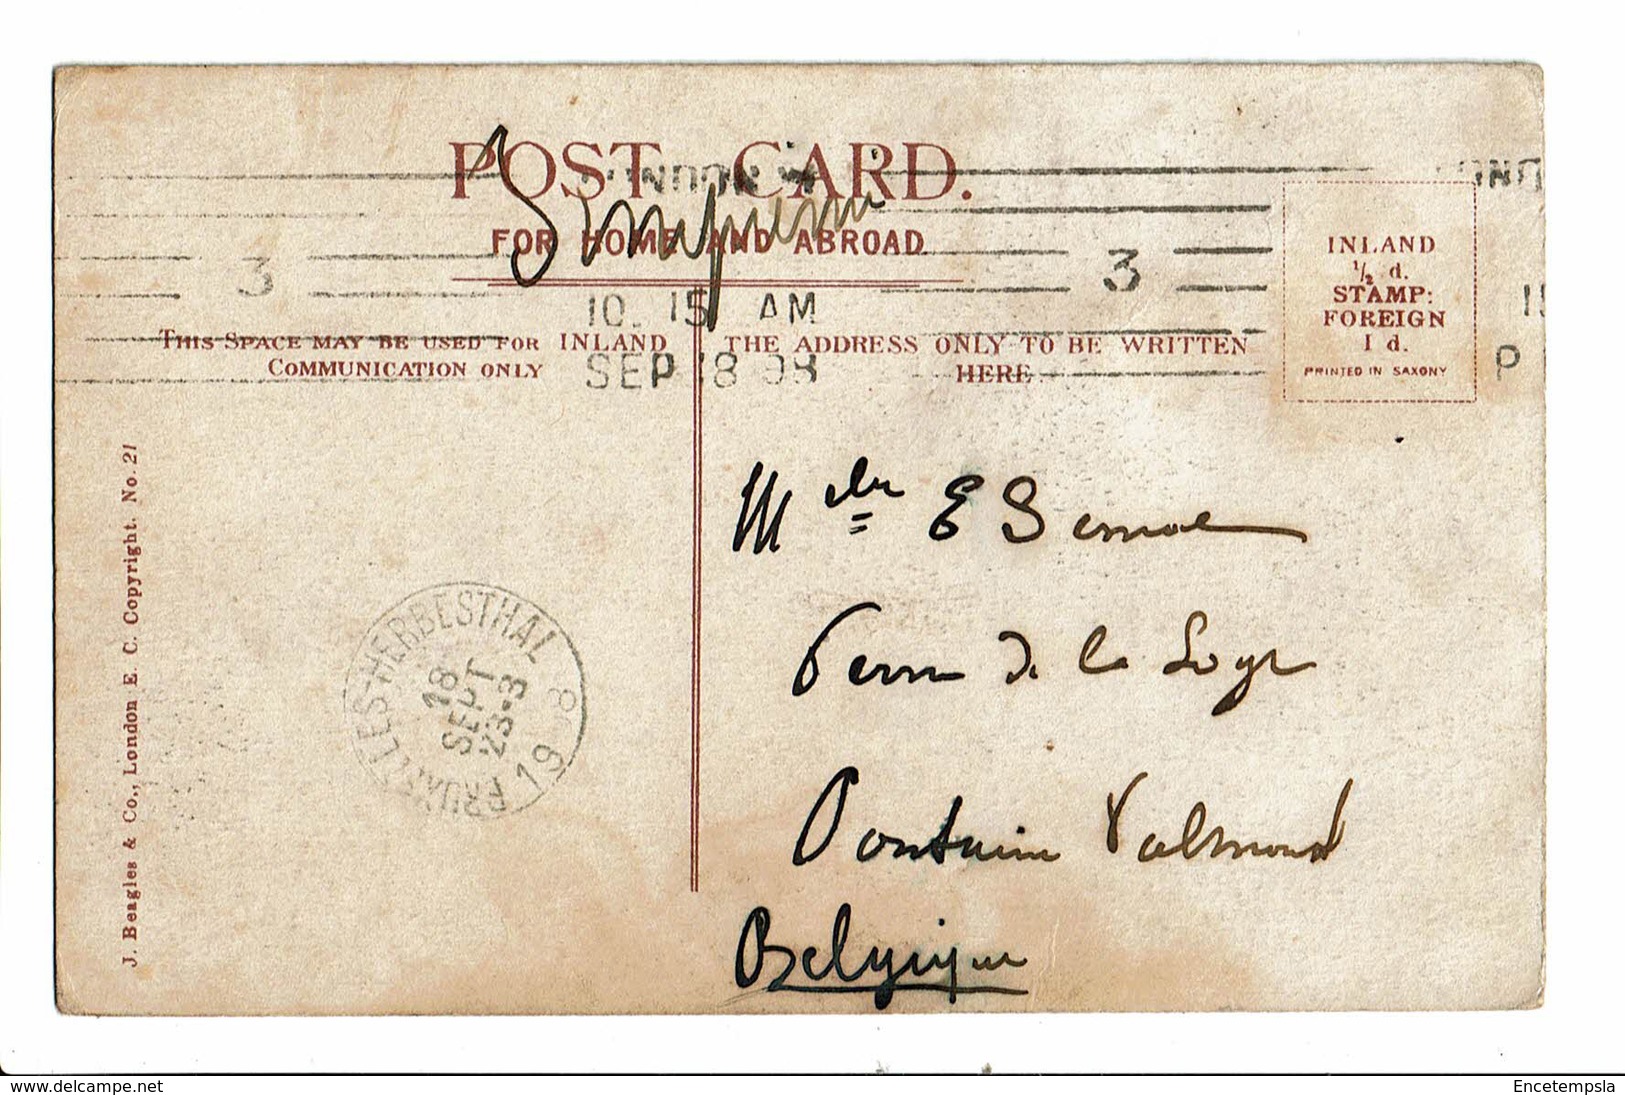 POST CARD.
LONDON.W.
FOR HOME AND ABROAD
3
3
10. 15 AM
SEP 18 08
INLAND
½ d.
STAMP:
FOREIGN
1 d.
PRINTED IN SAXONY
THIS SPACE MAY BE USED FOR INLAND
COMMUNICATION ONLY
THE ADDRESS ONLY TO BE WRITTEN
HERE
J. Beagles & Co., London E. C. Copyright. No. 21
BRUXELLES-HERBESTHAL
18
SEPT
23-3
19 8
Melle E
de la
Fontaine Valmont
Belgique
www.delcampe.net
Encetempsla